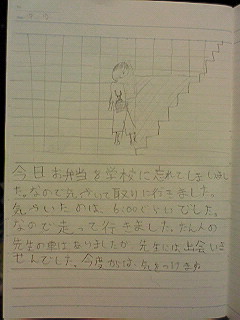 今日お弁当を学校に忘れてしまいまし
た。なので気がついて取りに行きました。
気がついたのは、6:00ぐらいでした。
なので走って行きました。たん人の
先生の車はありましたが、先生には出会いま
せんでした。今度からは、気をつけます